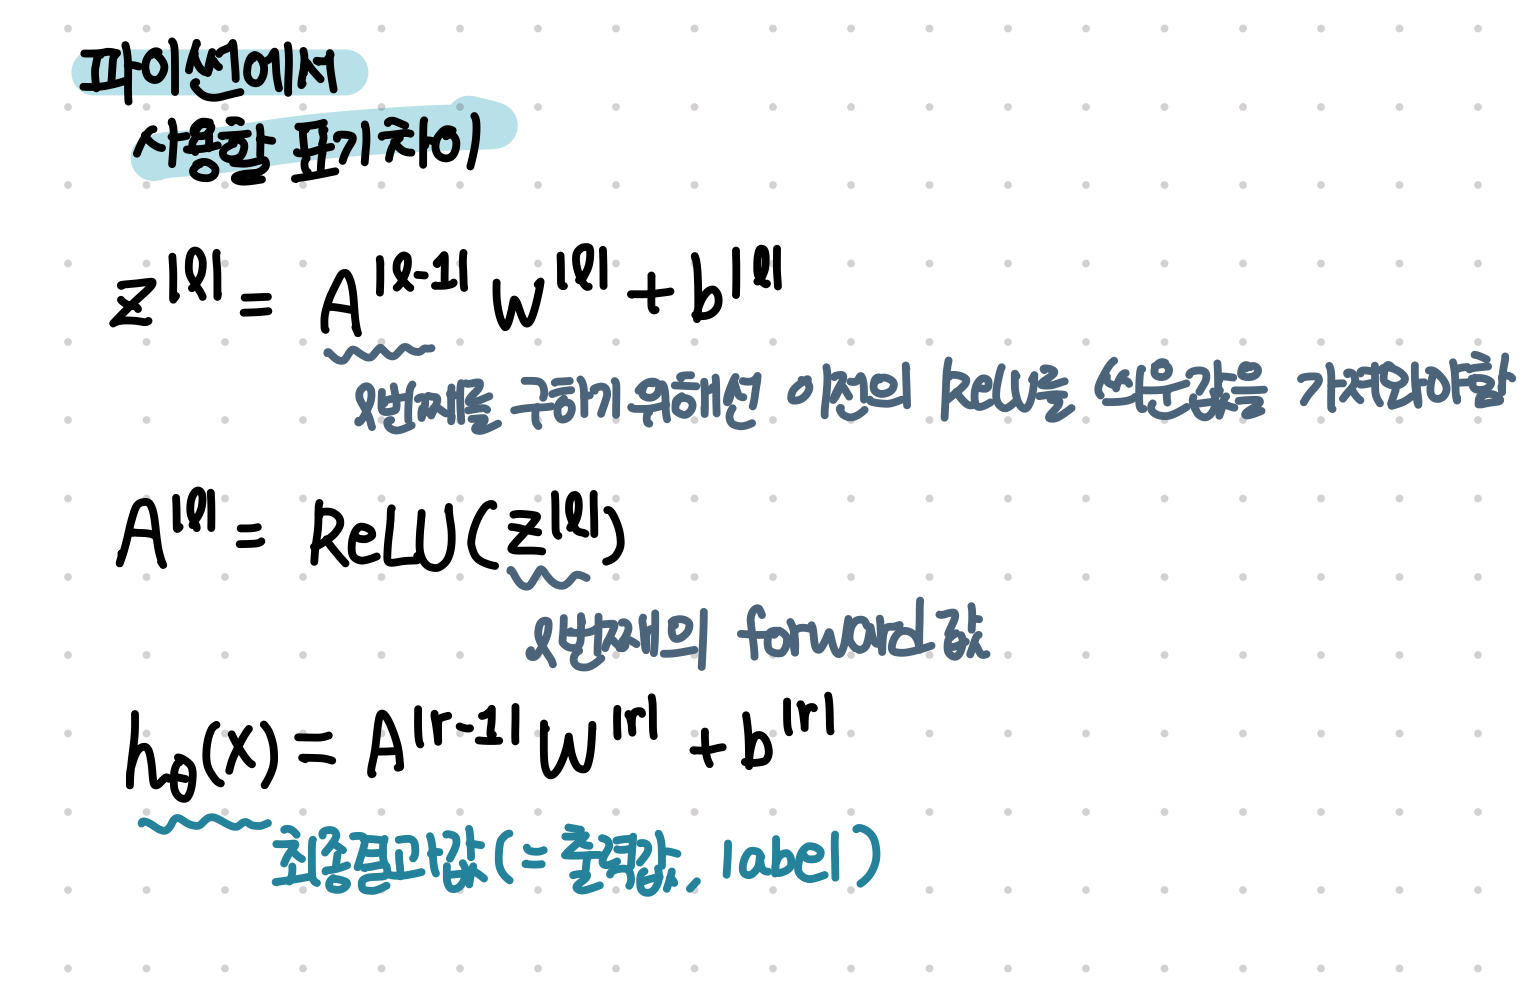 파이썬에서
사용할 표기차이
z^|l| = A^|l-1| W^|l| + b^|l|
l번째를 구하기 위해선 이전의 ReLU를 씌운값을 가져와야함
A^|l| = ReLU(z^|l|)
l번째의 forward값
h_θ(x) = A^|r-1| W^|r| + b^|r|
최종결과값(= 출력값, label)